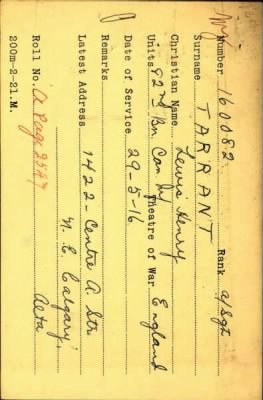 Number 160082 Rank a/Sgt
Surname TARRANT
Christian Name Lewis Henry
Units 82nd Bn Can Inf Theatre of War England
Date of Service 29-5-16
Remarks
Latest Address 1422 - Centre A. Str
N. E. Calgary,
Alta
Roll No. A Page 2527
200m-2-21.M.